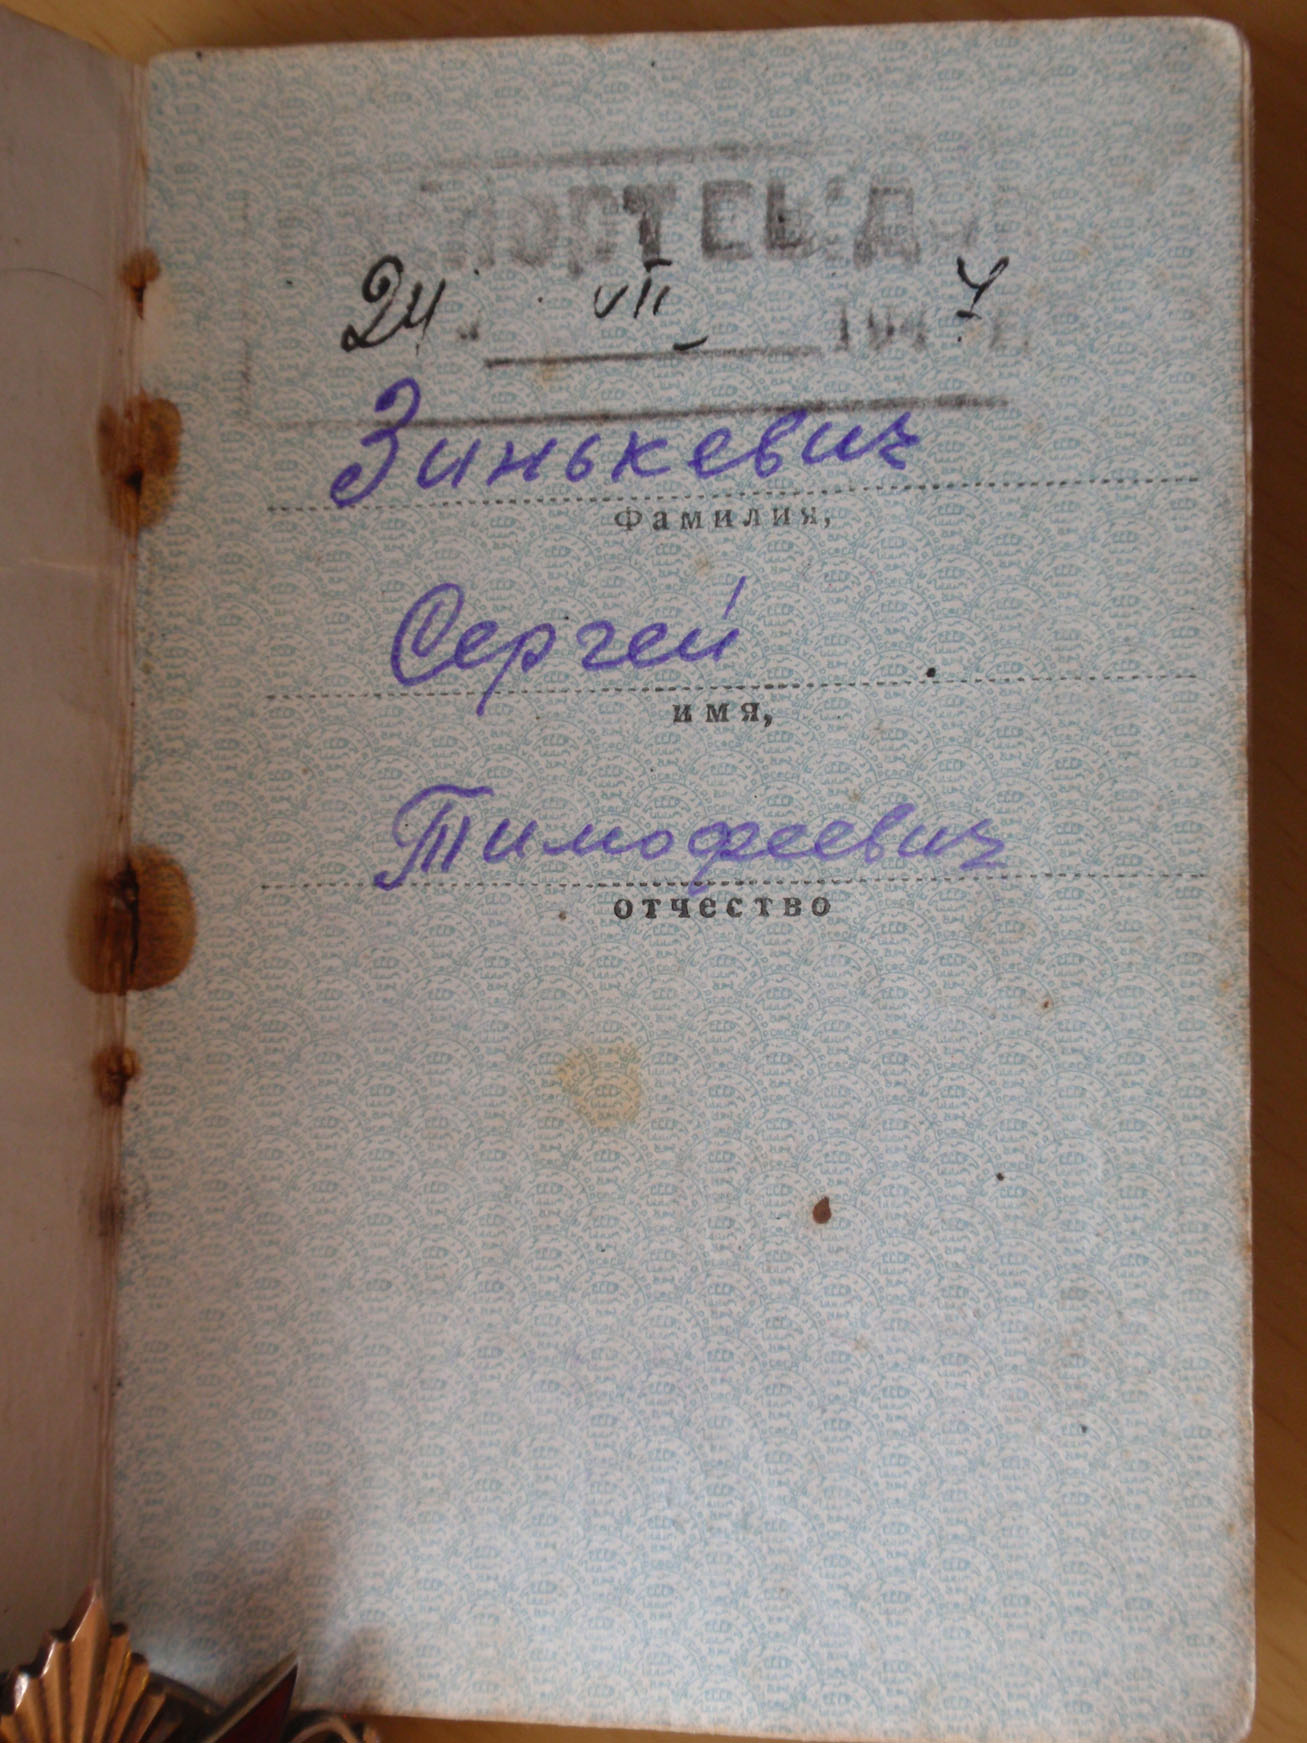 24 VII 1947 г.
Зинькевич
Фамилия,
Сергей
имя,
Тимофеевич
отчество